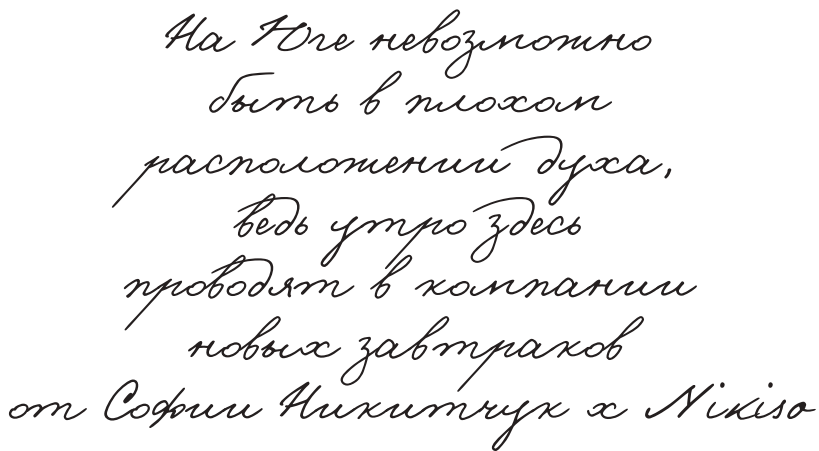 На Юге невозможно
быть в плохом
расположении духа,
ведь утро здесь
проводят в компании
новых завтраков
от Софии Никитчук x Nikiso